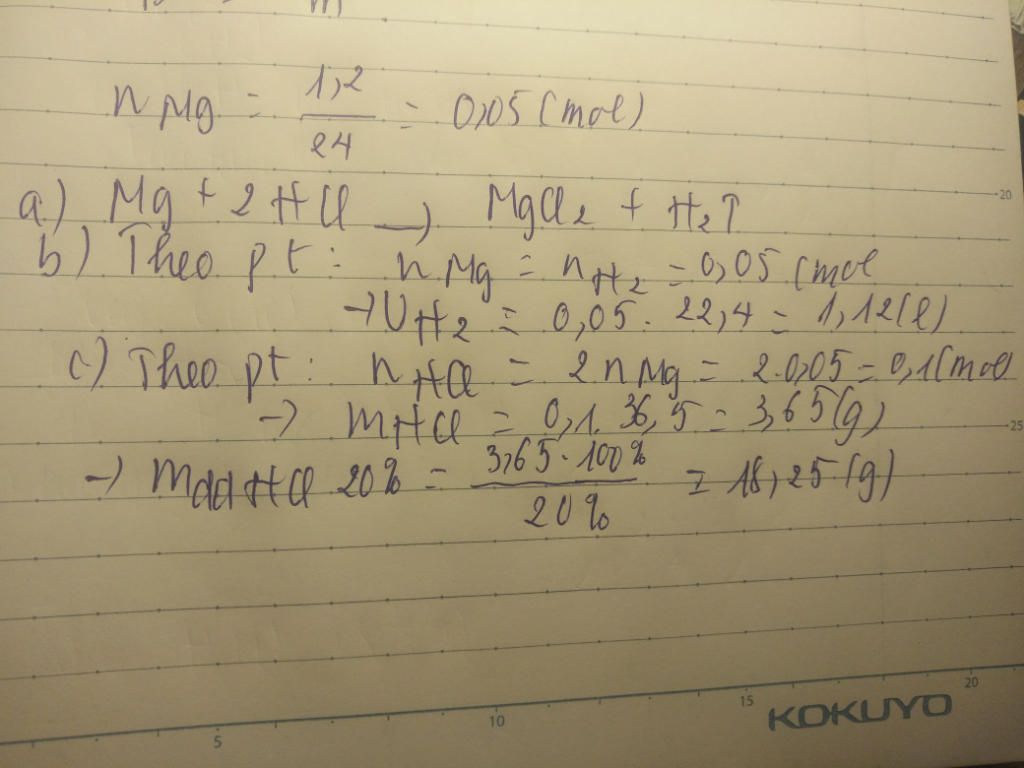 nMg = 1,2/24 = 0,05 (mol)
20
a) Mg + 2HCl → MgCl2 + H2↑
b) Theo pt : nMg = nH2 = 0,05 (mol
→ VH2 = 0,05 . 22,4 = 1,12 (l)
c) Theo pt : nHCl = 2nMg = 2.0,05 = 0,1 (mol
→ mHCl = 0,1.36,5 = 3,65 (g)
25
→ mddHCl 20% = 3,65.100%/20% = 18,25 (g)
5 10 15 20
KOKUYO